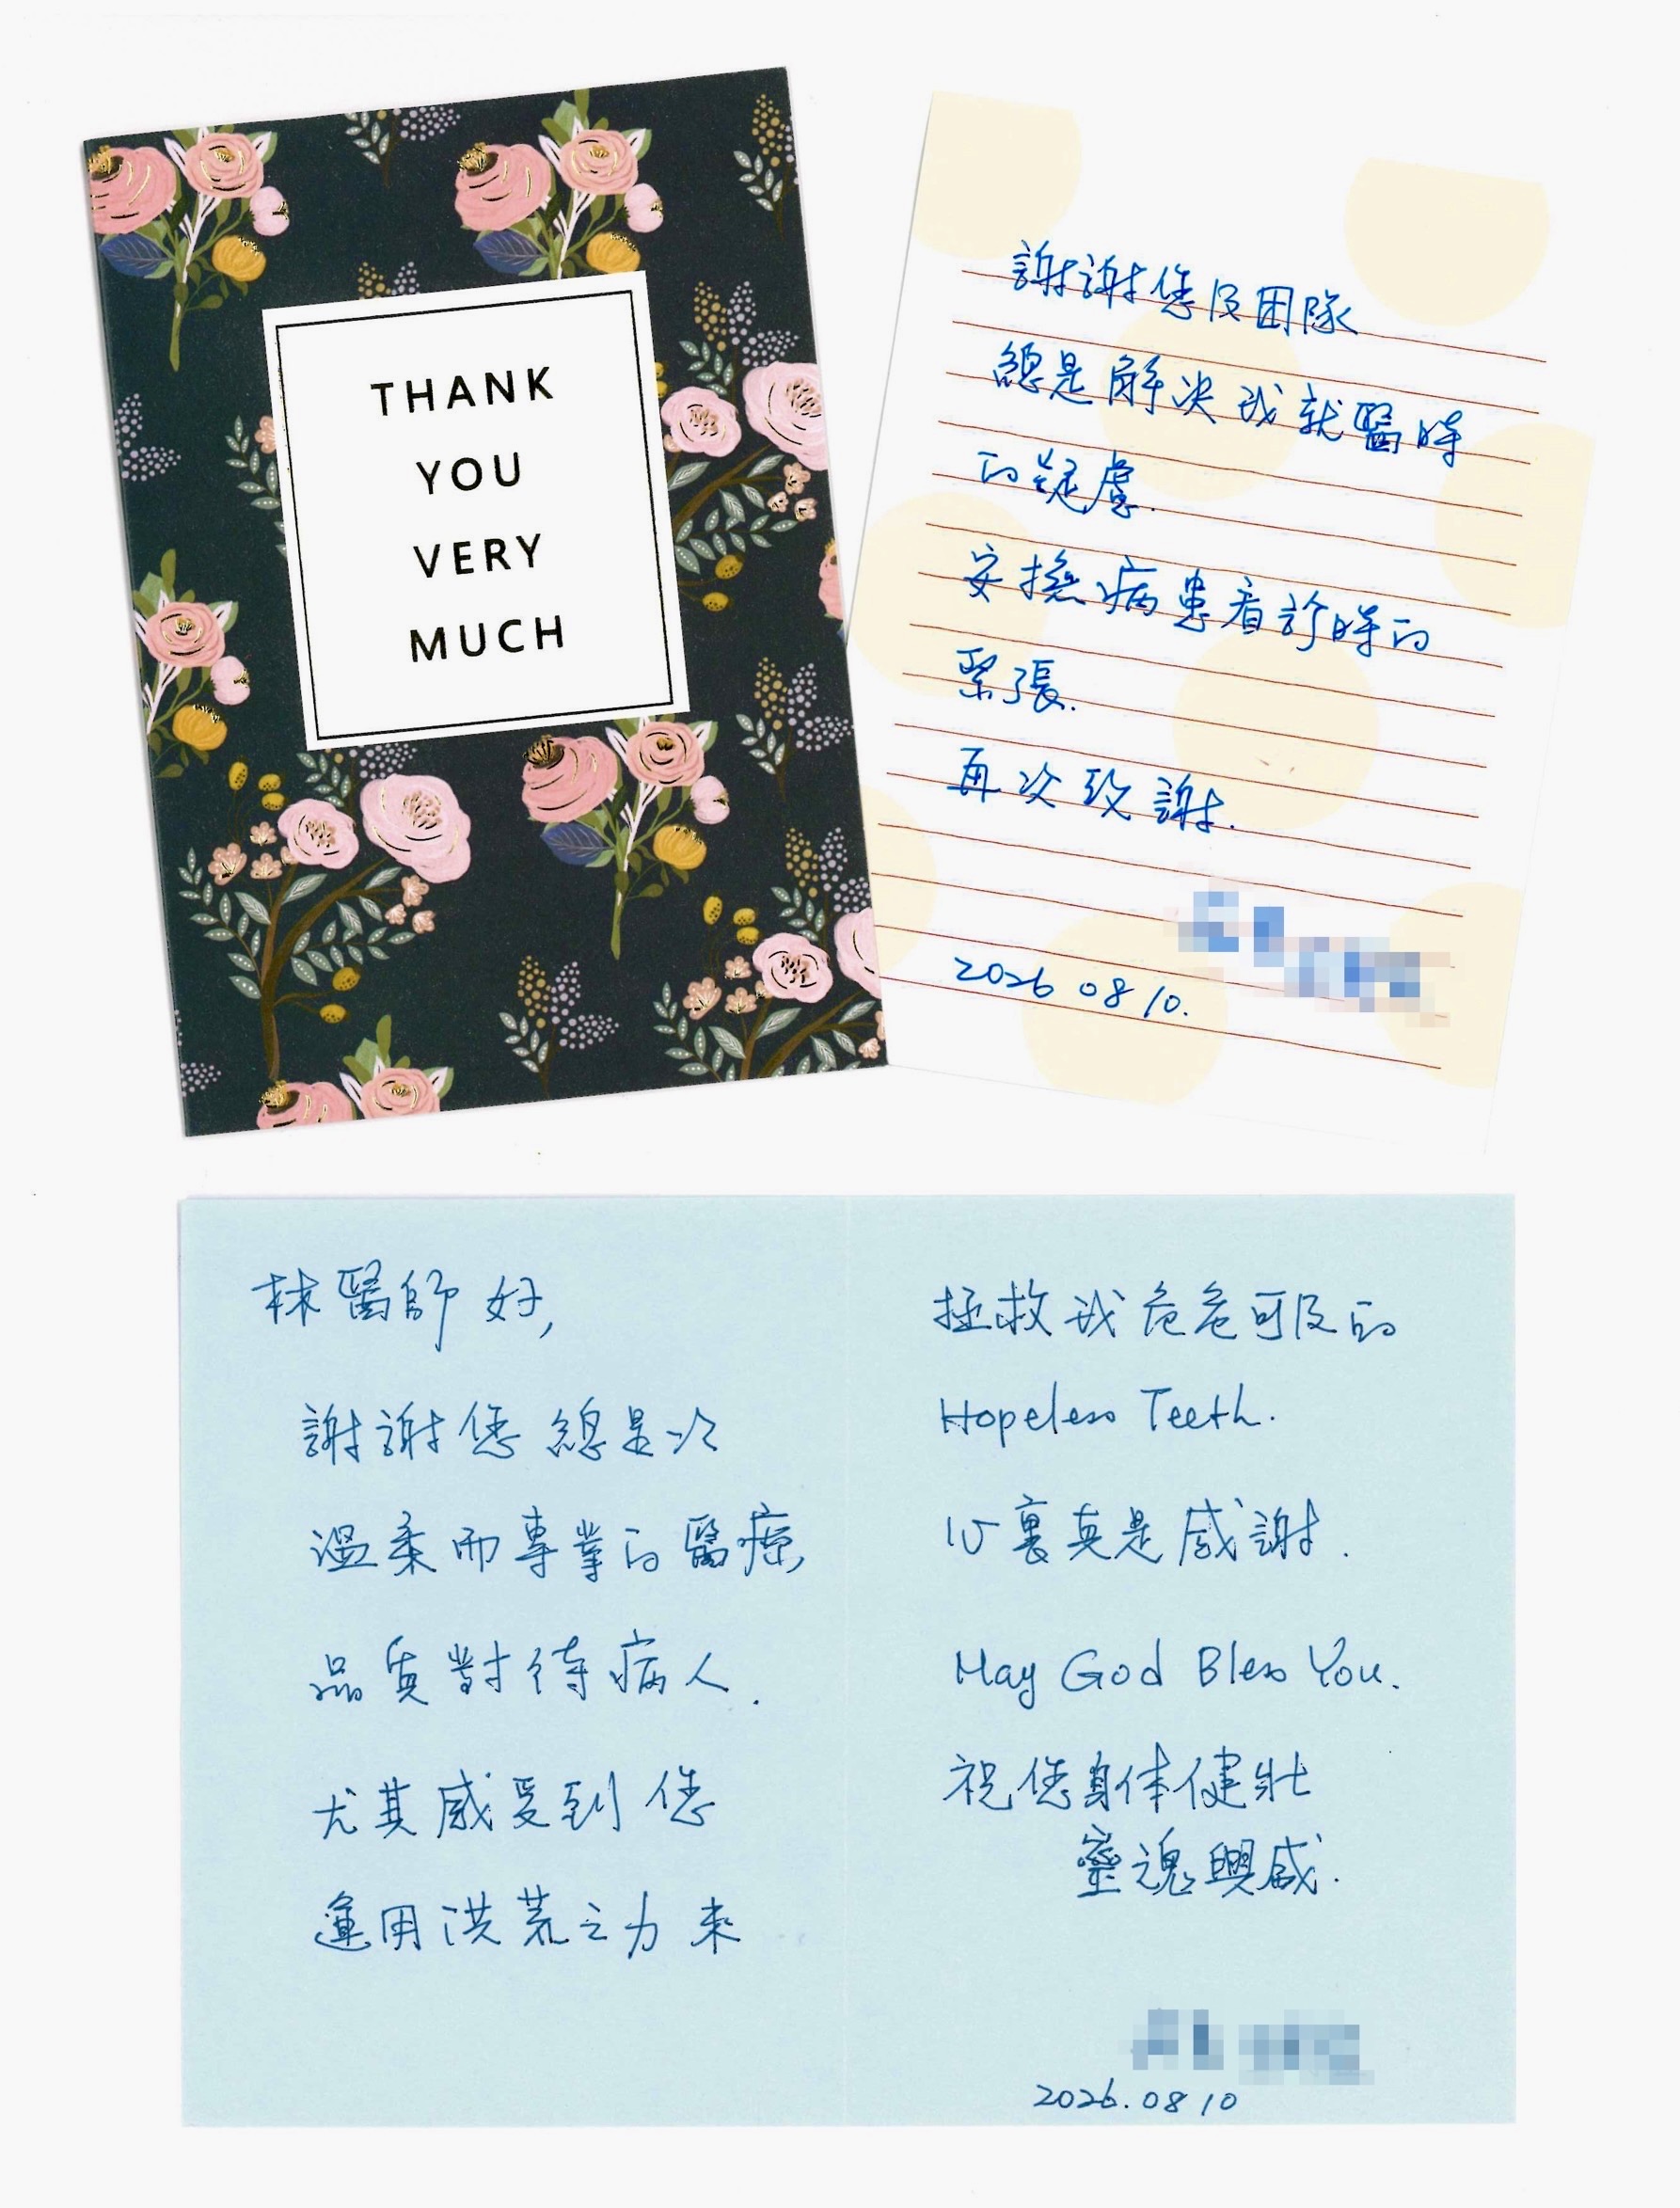 THANK
YOU
VERY
MUCH
謝謝您及團隊
總是解決我就醫時
的疑慮.
安撫病患看診時的
緊張.
再次致謝.
2026 08 10.
林醫師好,
謝謝您總是以
溫柔而專業的醫療
品質對待病人.
尤其感受到您
運用洪荒之力來
拯救我危危可及的
Hopeless Teeth.
心裏真是感謝.
May God Bless You.
祝您身体健壯
靈魂興盛.
2026.08 10